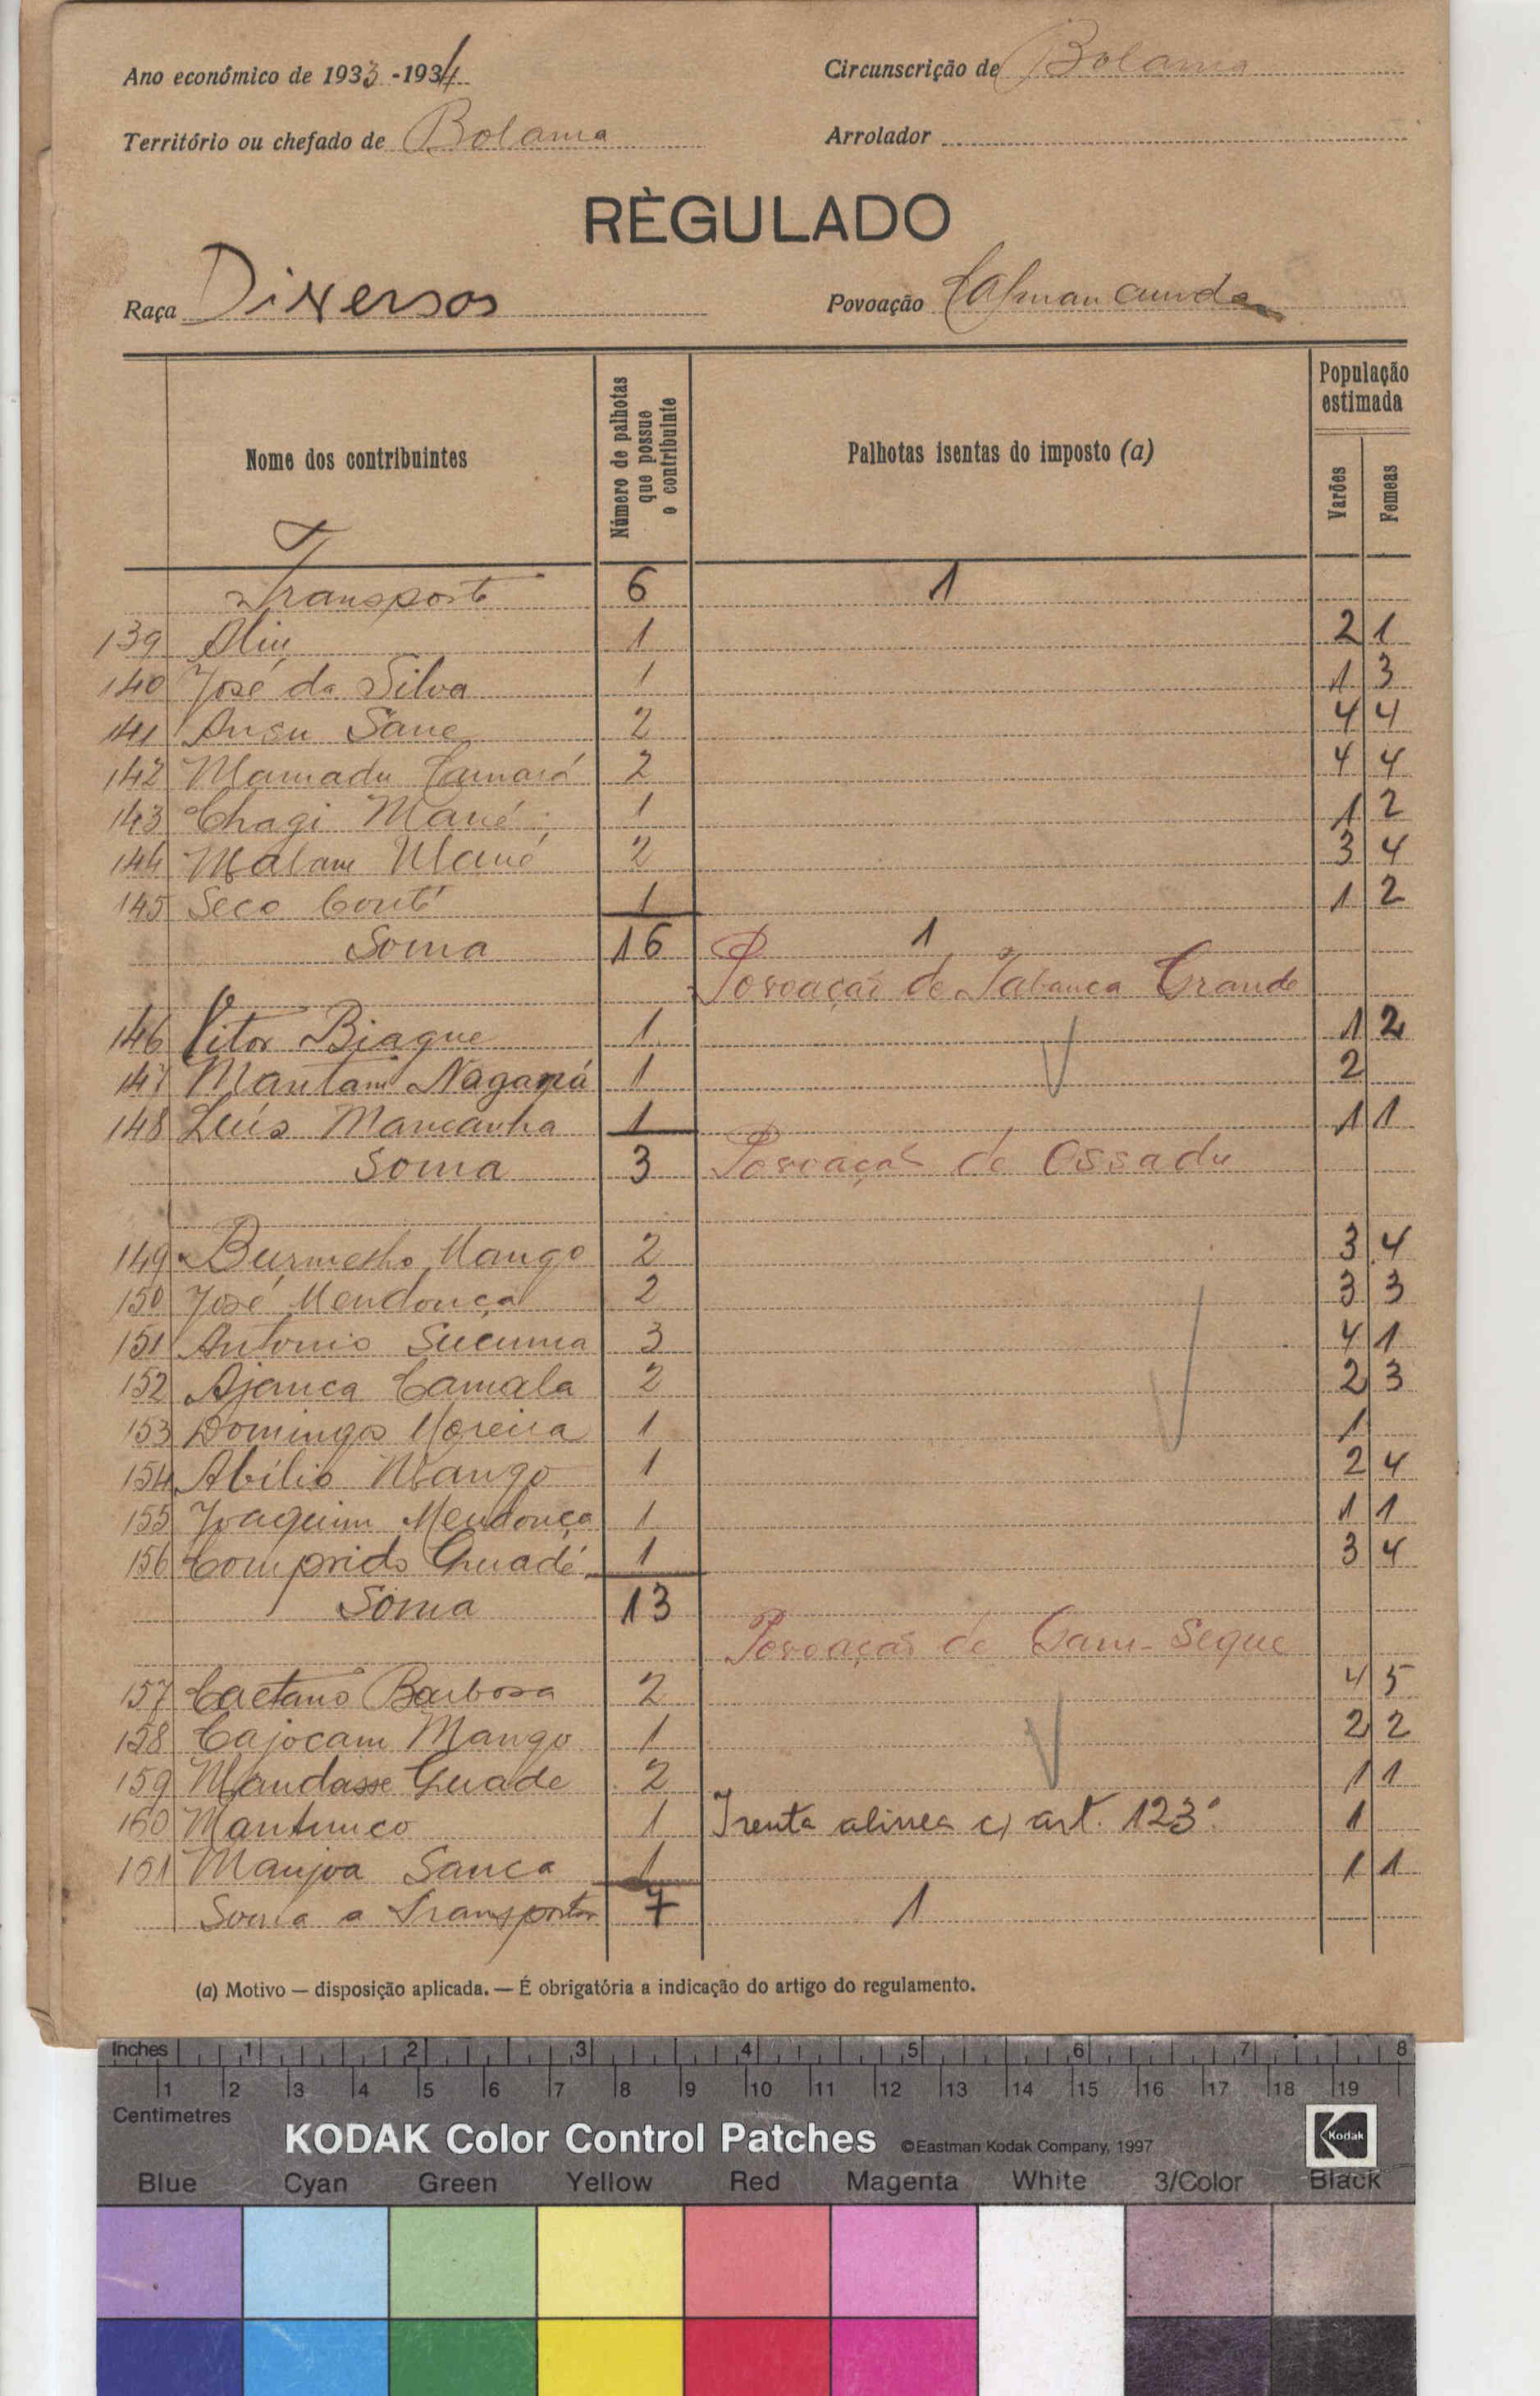 Ano económico de 1933-1934
Circunscrição de Bolama
Território ou chefado de Bolama
Arrolador
RÈGULADO
Raça Diversos
Povoação
Nome dos contribuintes
Número de palhotas que possue o contribuinte
Palhotas isentas do imposto (a)
População estimada
Varões
Femeas
Transporte 6 1
139 Aliu 1 2 1
140 José da Silva 1 1 3
141 Ansu Sane 2 4 4
142 Mamadu Camará 2 4 4
143 Chagi Mané 1 1 2
144 Malam Mané 2 3 4
145 Seco Conté 1 1 2
Soma 16 1
Povoação de Tabanca Grande
146 Vitor Biague 1 1 2
147 Mantam Nagará 1 2
148 Luís Mancanha 1 1 1
Soma 3 Povoação de Ossadu
149 Mango 2 3 4
150 José Mendonça 2 3 3
151 Antonio Sucuma 3 4 1
152 Ajanca Camala 2 2 3
153 Domingos Moreira 1 1
154 Abílio Mango 1 2 4
155 Joaquim Mendonça 1 1 1
156 Comprido Quadé 1 3 4
Soma 13
Povoação de Gam-Segue
157 Caetano Barbosa 2 4 5
158 Cajocam Mango 1 2 2
159 Mandasse Quade 2 1 1
160 Mantunco 1 Izenta alinea c) art. 123º 1
161 Manjoa Sanca 1 1 1
Soma a Transportar 7 1
(a) Motivo — disposição aplicada. — É obrigatória a indicação do artigo do regulamento.
Inches 1 2 3 4 5 6 7 8
1 2 3 4 5 6 7 8 9 10 11 12 13 14 15 16 17 18 19
Centimetres
KODAK Color Control Patches ©Eastman Kodak Company, 1997 Kodak
Blue Cyan Green Yellow Red Magenta White 3/Color Black